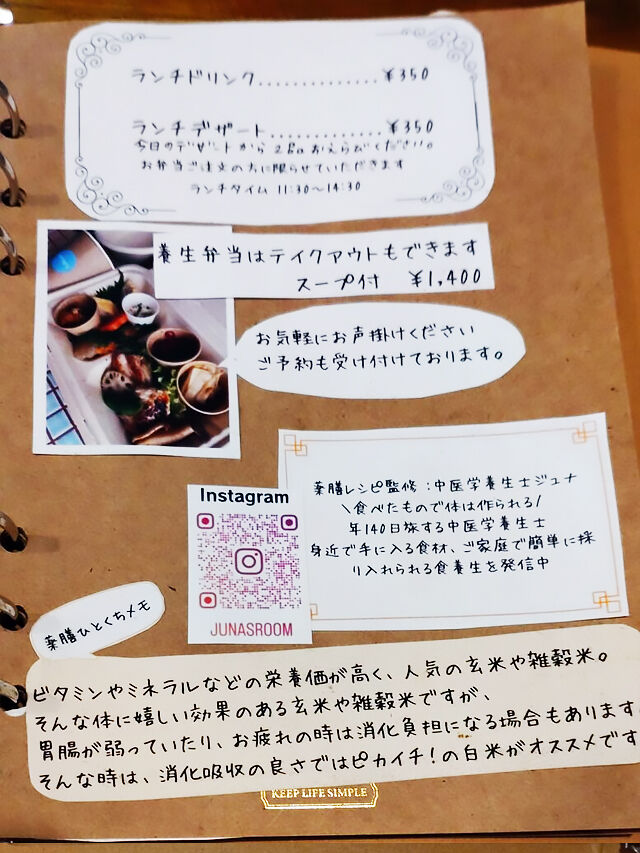 ランチドリンク..............¥350
ランチデザート.............¥350
今日のデザートから2品お選びください。
お弁当ご注文の方に限らせていただきます
ランチタイム 11:30〜14:30
養生弁当はテイクアウトもできます
スープ付 ¥1,400
お気軽にお声掛けください
ご予約も受け付けております。
薬膳レシピ監修：中医学養生士ジュナ
\食べたもので体は作られる/
年140日旅する中医学養生士
身近で手に入る食材、ご家庭で簡単に採
り入れられる食養生を発信中
Instagram
JUNASROOM
薬膳ひとくちメモ
ビタミンやミネラルなどの栄養価が高く、人気の玄米や雑穀米。
そんな体に嬉しい効果のある玄米や雑穀米ですが、
胃腸が弱っていたり、お疲れの時は消化負担になる場合もあります
そんな時は、消化吸収の良さではピカイチ！の白米がオススメです
KEEP LIFE SIMPLE